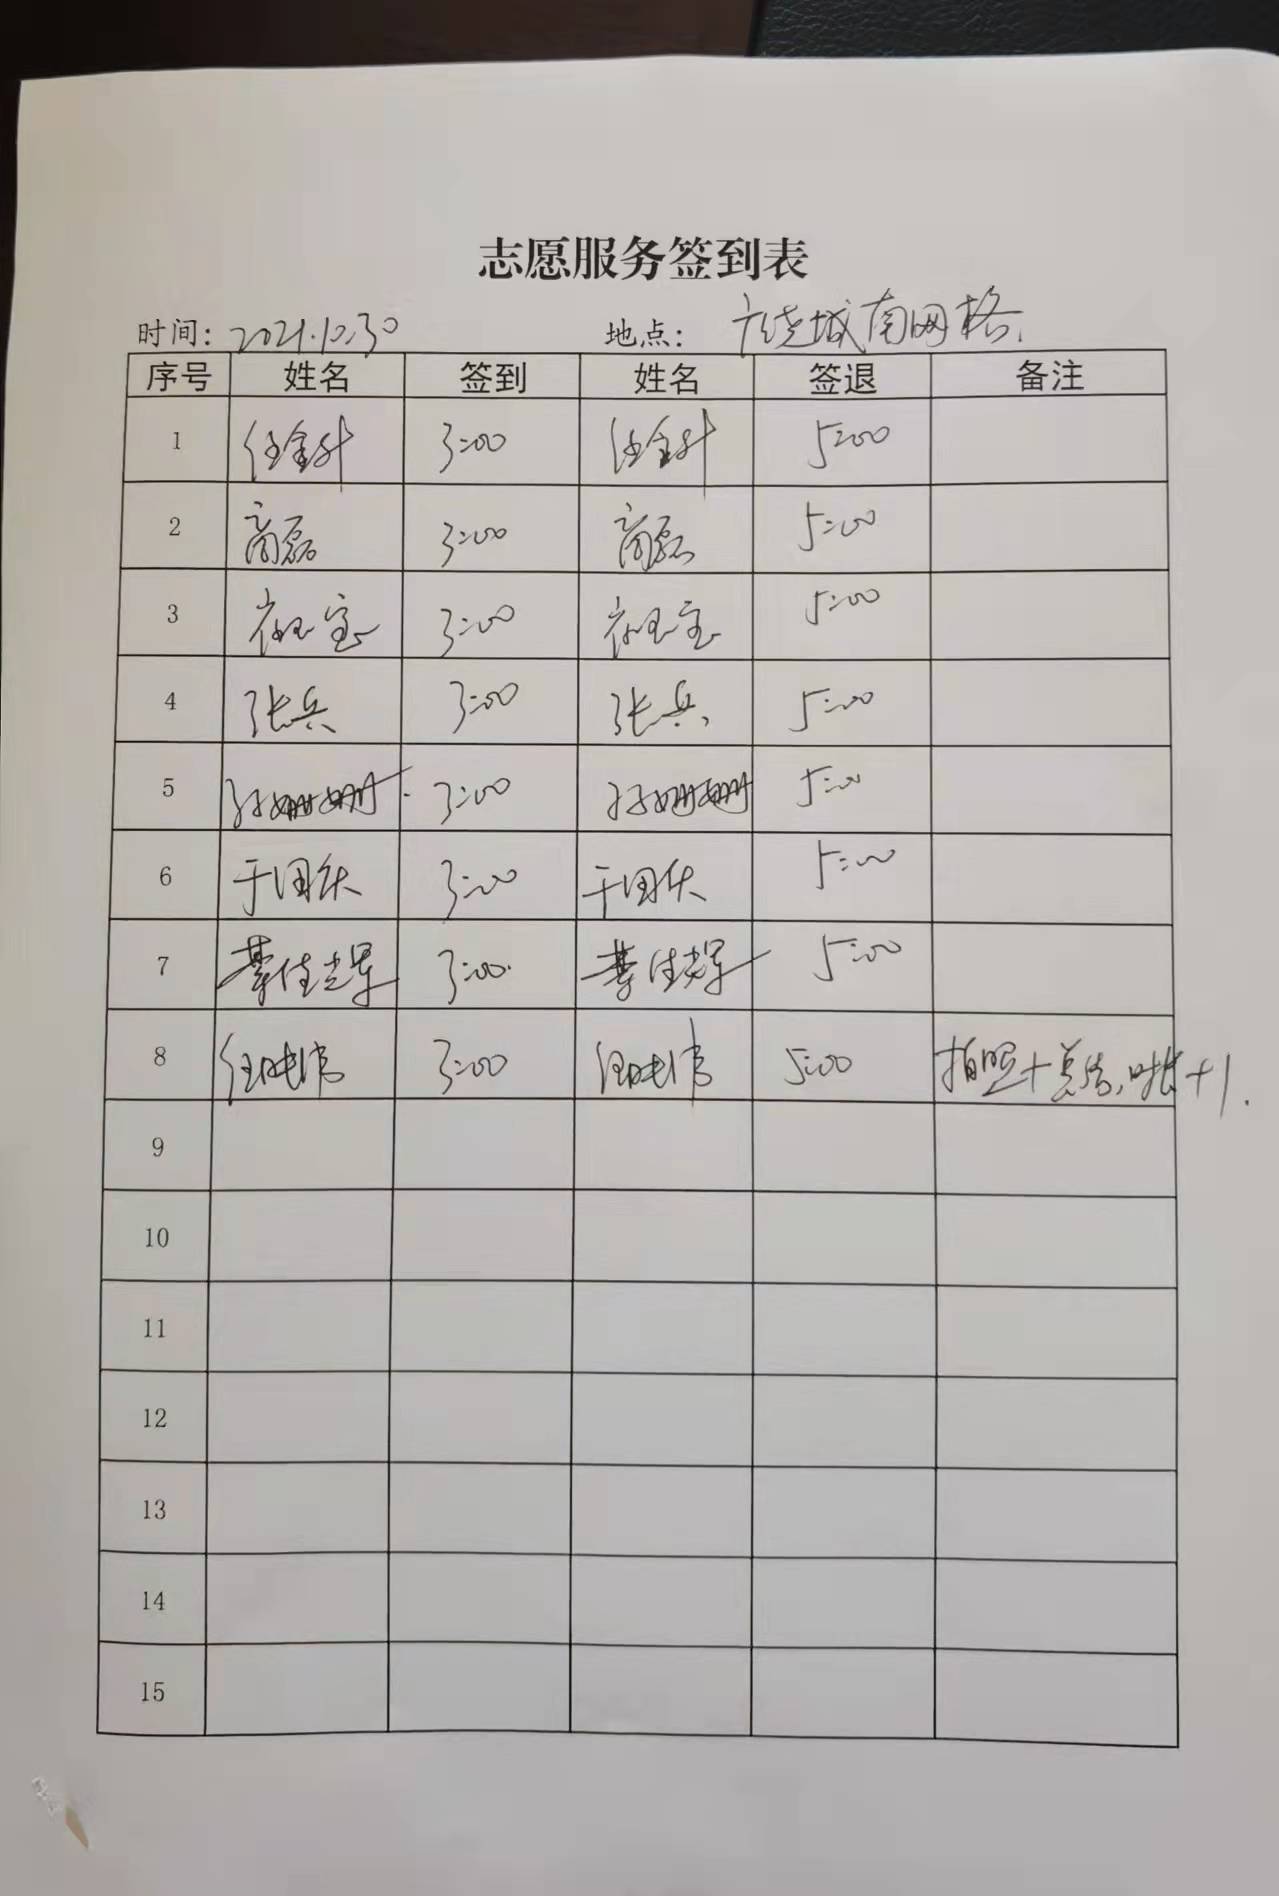 志愿服务签到表
时间: 2021.10.30 地点: 广饶城南网格.
序号 姓名 签到 姓名 签退 备注
1 任金升 3:00 任金升 5:00
2 商磊 3:00 商磊 5:00
3 3:00 5:00
4 张兵 3:00 张兵 5:00
5 孙姗姗 3:00 孙姗姗 5:00
6 于国庆 3:00 于国庆 5:00
7 綦佳辉 3:00 綦佳辉 5:00
8 任晓伟 3:00 任晓伟 5:00 拍照+总结,时长+1.
9
10
11
12
13
14
15